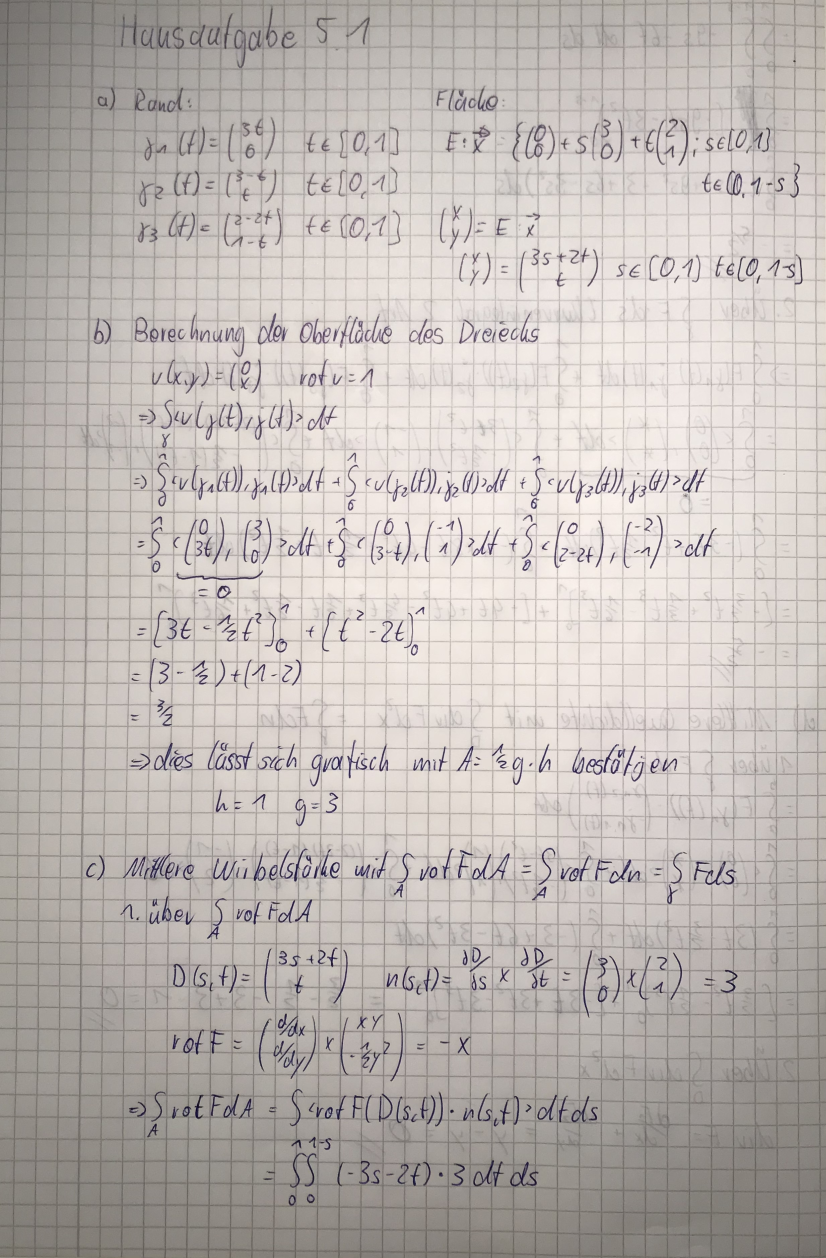 Hausaufgabe 5.1
a) Rand:
γ1(t) = (3t 0) t∈[0,1]
γ2(t) = (3-t t) t∈[0,1]
γ3(t) = (2-2t 1-t) t∈[0,1]
Fläche:
E: x⃗ = {(0 0) + s(3 0) + t(2 1); s∈[0,1]
t∈[0,1-s]}
(x y) = E x⃗
(x y) = (3s+2t t) s∈[0,1] t∈[0,1-s]
b) Berechnung der Oberfläche des Dreiecks
v(x,y) = (0 x) rot v = 1
⇒ ∫γ <v(γ(t), γ̇(t)> dt
⇒ ∫₀¹ <v(γ1(t)), γ̇1(t)> dt + ∫₀¹ <v(γ2(t)), γ̇2(t)> dt + ∫₀¹ <v(γ3(t)), γ̇3(t)> dt
= ∫₀¹ <(0 3t), (3 0)> dt + ∫₀¹ <(0 3-t), (-1 1)> dt + ∫₀¹ <(0 2-2t), (-2 -1)> dt
= 0
= [3t - ½t²]₀¹ + [t² - 2t]₀¹
= (3 - ½) + (1-2)
= 3/2
⇒ dies lässt sich grafisch mit A = ½ g·h bestätigen
h = 1 g = 3
c) Mittlere Wirbelstärke mit ∫A rot F dA = ∫A rot F dn = ∫γ F ds
1. über ∫A rot F dA
D(s,t) = (3s+2t t) n(s,t) = ∂D/∂s × ∂D/∂t = (3 0) × (2 1) = 3
rot F = (d/dx d/dy) × (xy -½y²) = -x
⇒ ∫A rot F dA = ∫ <rot F(D(s,t)) · n(s,t)> dt ds
= ∫₀¹ ∫₀¹⁻ˢ (-3s-2t) · 3 dt ds